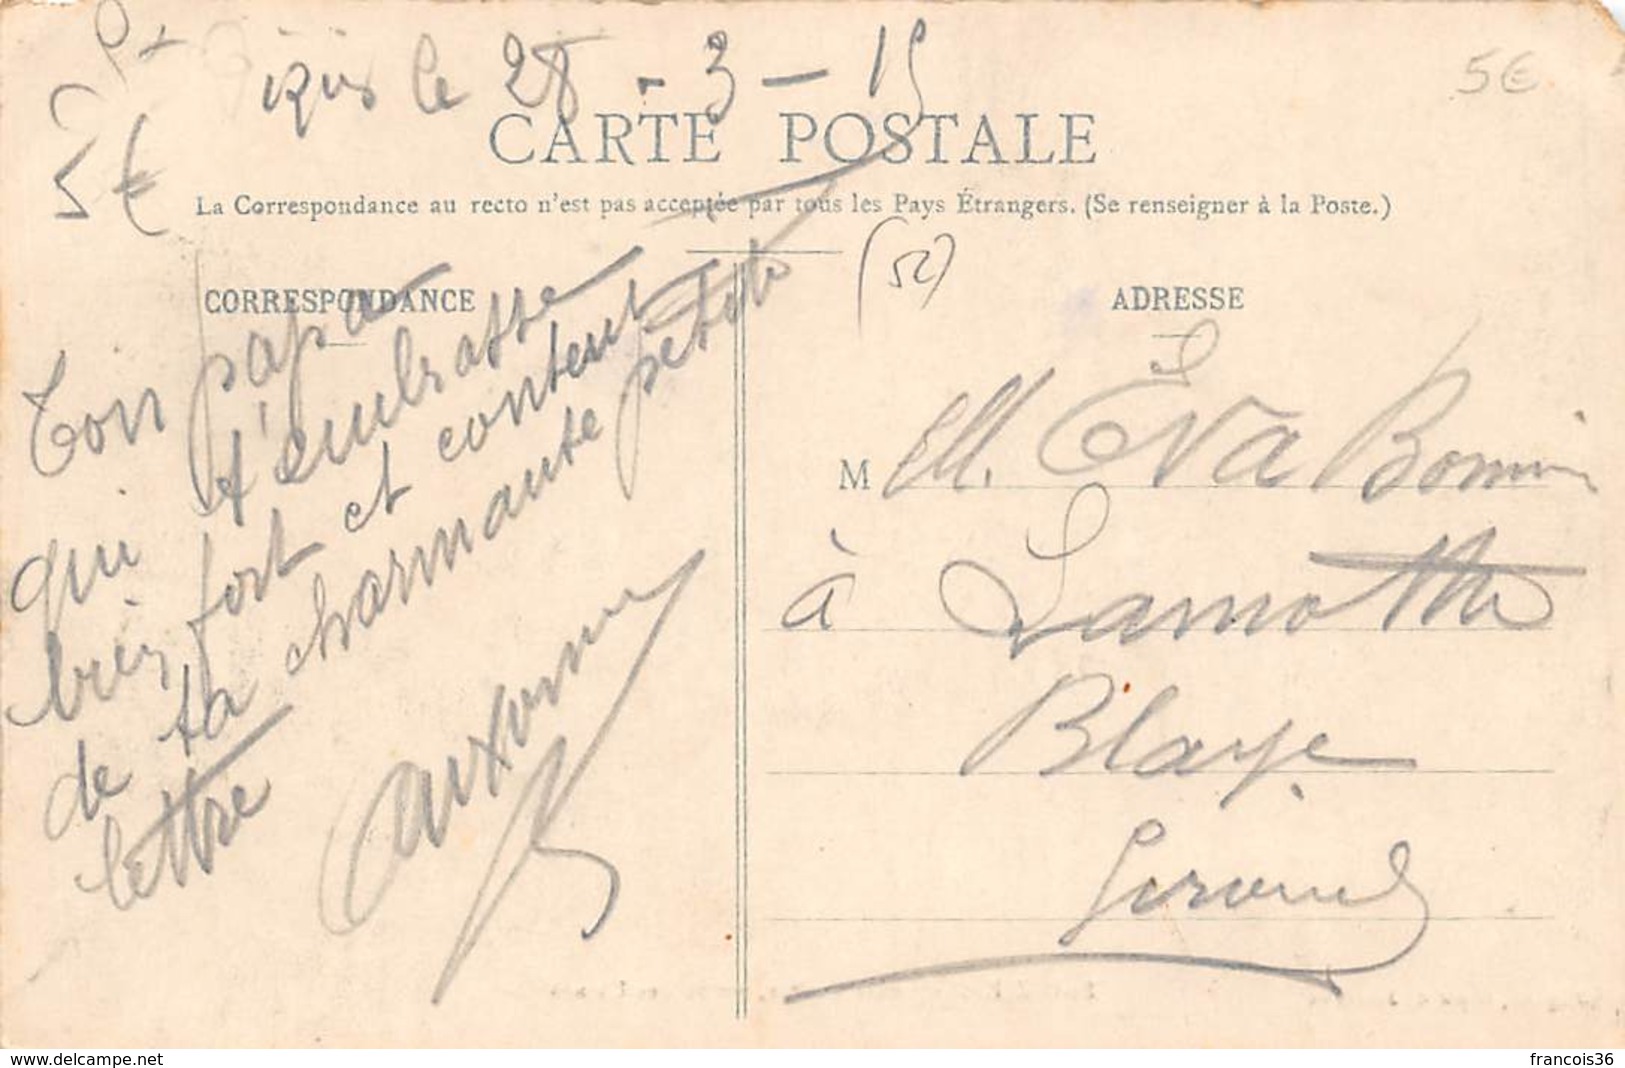 le 28 - 3 - 15
5€
5€
CARTE POSTALE
La Correspondance au recto n'est pas acceptée par tous les Pays Étrangers. (Se renseigner à la Poste.)
(52)
CORRESPONDANCE
Ton papa
qui t'embrasse
bien fort et content
de ta charmante petite
lettre
ADRESSE
M ell. Eva
à Lamothe
Blaye
Gironde
www.delcampe.net
francois36